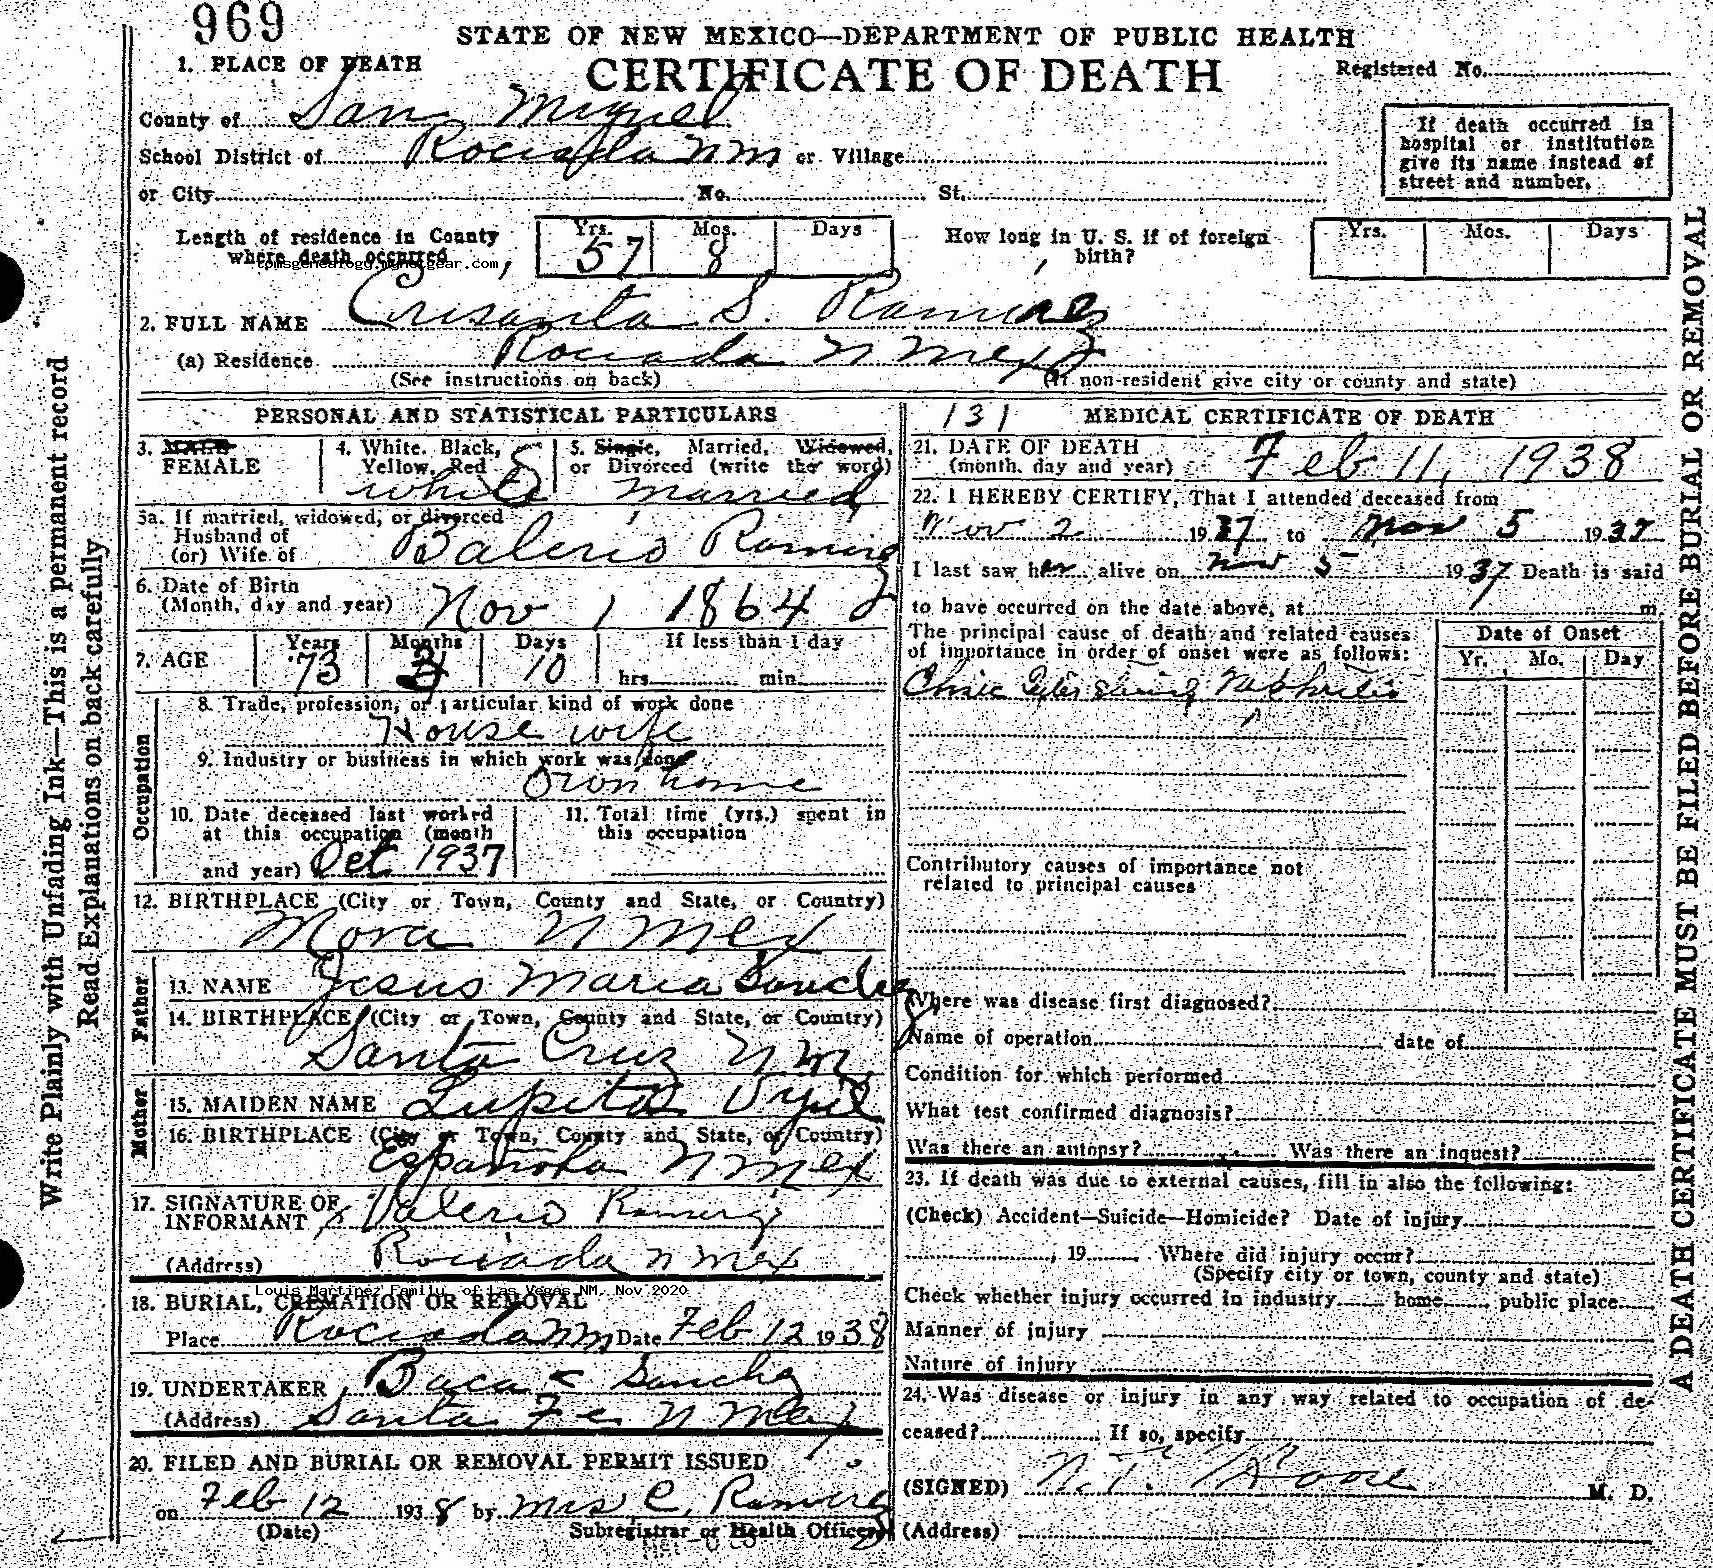 969
STATE OF NEW MEXICO—DEPARTMENT OF PUBLIC HEALTH
1. PLACE OF DEATH
CERTIFICATE OF DEATH
Registered No.
County of San Miguel
School District of Rociada N M or Village
or City No. St.
If death occurred in
hospital or institution
give its name instead of
street and number.
Length of residence in County
where death occurred
tomsgenealogy.mynetgear.com
Yrs. Mos. Days
57 8
How long in U. S. if of foreign
birth?
Yrs. Mos. Days
2. FULL NAME Crisanta S. Ramirez
(a) Residence Rociada N Mex
(See instructions on back) (If non-resident give city or county and state)
PERSONAL AND STATISTICAL PARTICULARS
3. MALE
FEMALE
4. White, Black,
Yellow, Red
White
5. Single, Married, Widowed,
or Divorced (write the word)
Married
5a. If married, widowed, or divorced
Husband of
(or) Wife of Balerio Ramirez
6. Date of Birth
(Month, day and year) Nov 1 1864
7. AGE
Years Months Days If less than 1 day
73 3 10 hrs. min.
Occupation
8. Trade, profession, or particular kind of work done
House wife
9. Industry or business in which work was done
Own home
10. Date deceased last worked
at this occupation (month
and year) Oct 1937
11. Total time (yrs.) spent in
this occupation
12. BIRTHPLACE (City or Town, County and State, or Country)
Mora N Mex
Father
13. NAME Jesus Maria Sanchez
14. BIRTHPLACE (City or Town, County and State, or Country)
Santa Cruz N M
Mother
15. MAIDEN NAME Lupita Vijil
16. BIRTHPLACE (City or Town, County and State, or Country)
Española N Mex
17. SIGNATURE OF
INFORMANT x Valerio Ramirez
(Address) Rociada N Mex
Louis Martinez Family, of Las Vegas NM, Nov 2020
18. BURIAL, CREMATION OR REMOVAL
Place Rociada NM Date Feb 12 1938
19. UNDERTAKER Baca & Sanchez
(Address) Santa Fe N Mex
20. FILED AND BURIAL OR REMOVAL PERMIT ISSUED
on Feb 12 1938 by Mrs C. Ramirez
(Date) Subregistrar or Health Officer
131 MEDICAL CERTIFICATE OF DEATH
21. DATE OF DEATH
(month, day and year) Feb 11, 1938
22. I HEREBY CERTIFY, That I attended deceased from
Nov 2 1937 to Nov 5 1937
I last saw her alive on Nov 5 1937 Death is said
to have occurred on the date above, at m
The principal cause of death and related causes
of importance in order of onset were as follows:
Nephritis
Date of Onset
Yr. Mo. Day
Contributory causes of importance not
related to principal causes
Where was disease first diagnosed?
Name of operation date of
Condition for which performed
What test confirmed diagnosis?
Was there an autopsy? Was there an inquest?
23. If death was due to external causes, fill in also the following:
(Check) Accident—Suicide—Homicide? Date of injury
, 19 Where did injury occur?
(Specify city or town, county and state)
Check whether injury occurred in industry home public place
Manner of injury
Nature of injury
24. Was disease or injury in any way related to occupation of de-
ceased? If so, specify
(SIGNED) M. D.
(Address)
Write Plainly with Unfading Ink—This is a permanent record
Read Explanations on back carefully
A DEATH CERTIFICATE MUST BE FILED BEFORE BURIAL OR REMOVAL